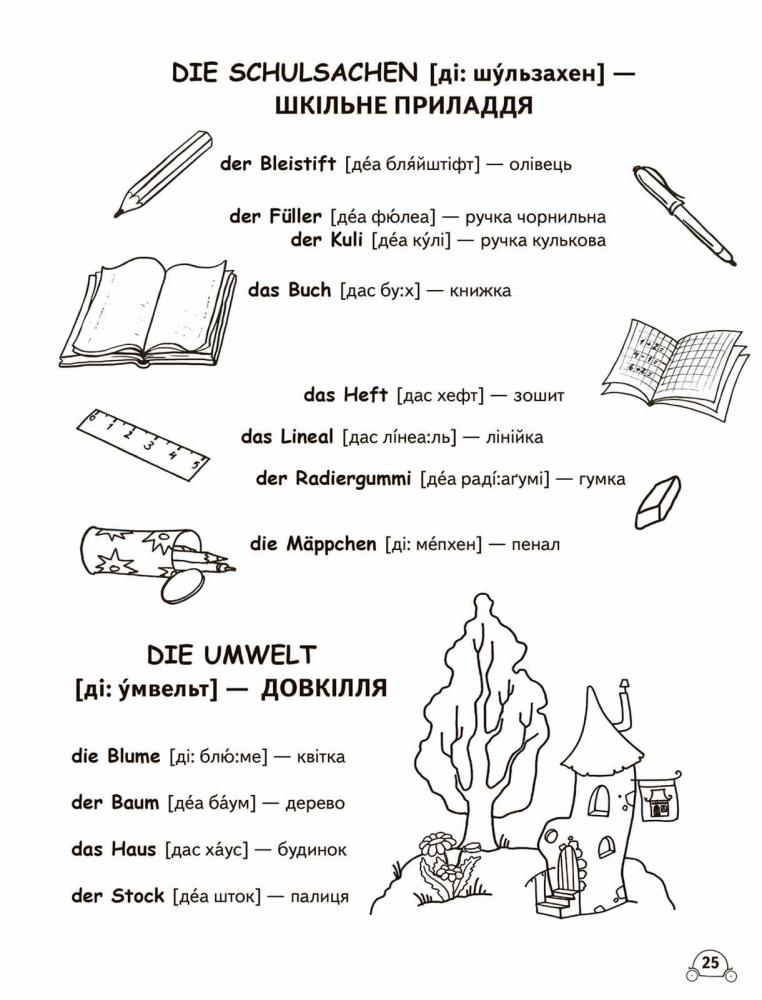 DIE SCHULSACHEN [ді: шу́льзахен] —
ШКІЛЬНЕ ПРИЛАДДЯ
der Bleistift [де́а бля́йштіфт] — олівець
der Füller [де́а фю́леа] — ручка чорнильна
der Kuli [де́а ку́лі] — ручка кулькова
das Buch [дас бу:х] — книжка
1+2=
4-1=
6+2=
das Heft [дас хефт] — зошит
0 1 2 3 4 5
das Lineal [дас лі́неа:ль] — лінійка
der Radiergummi [де́а раді́:аґумі] — гумка
die Mäppchen [ді: ме́пхен] — пенал
DIE UMWELT
[ді: у́мвельт] — ДОВКІЛЛЯ
die Blume [ді: блю́:ме] — квітка
der Baum [де́а ба́ум] — дерево
das Haus [дас ха́ус] — будинок
der Stock [де́а шток] — палиця
25